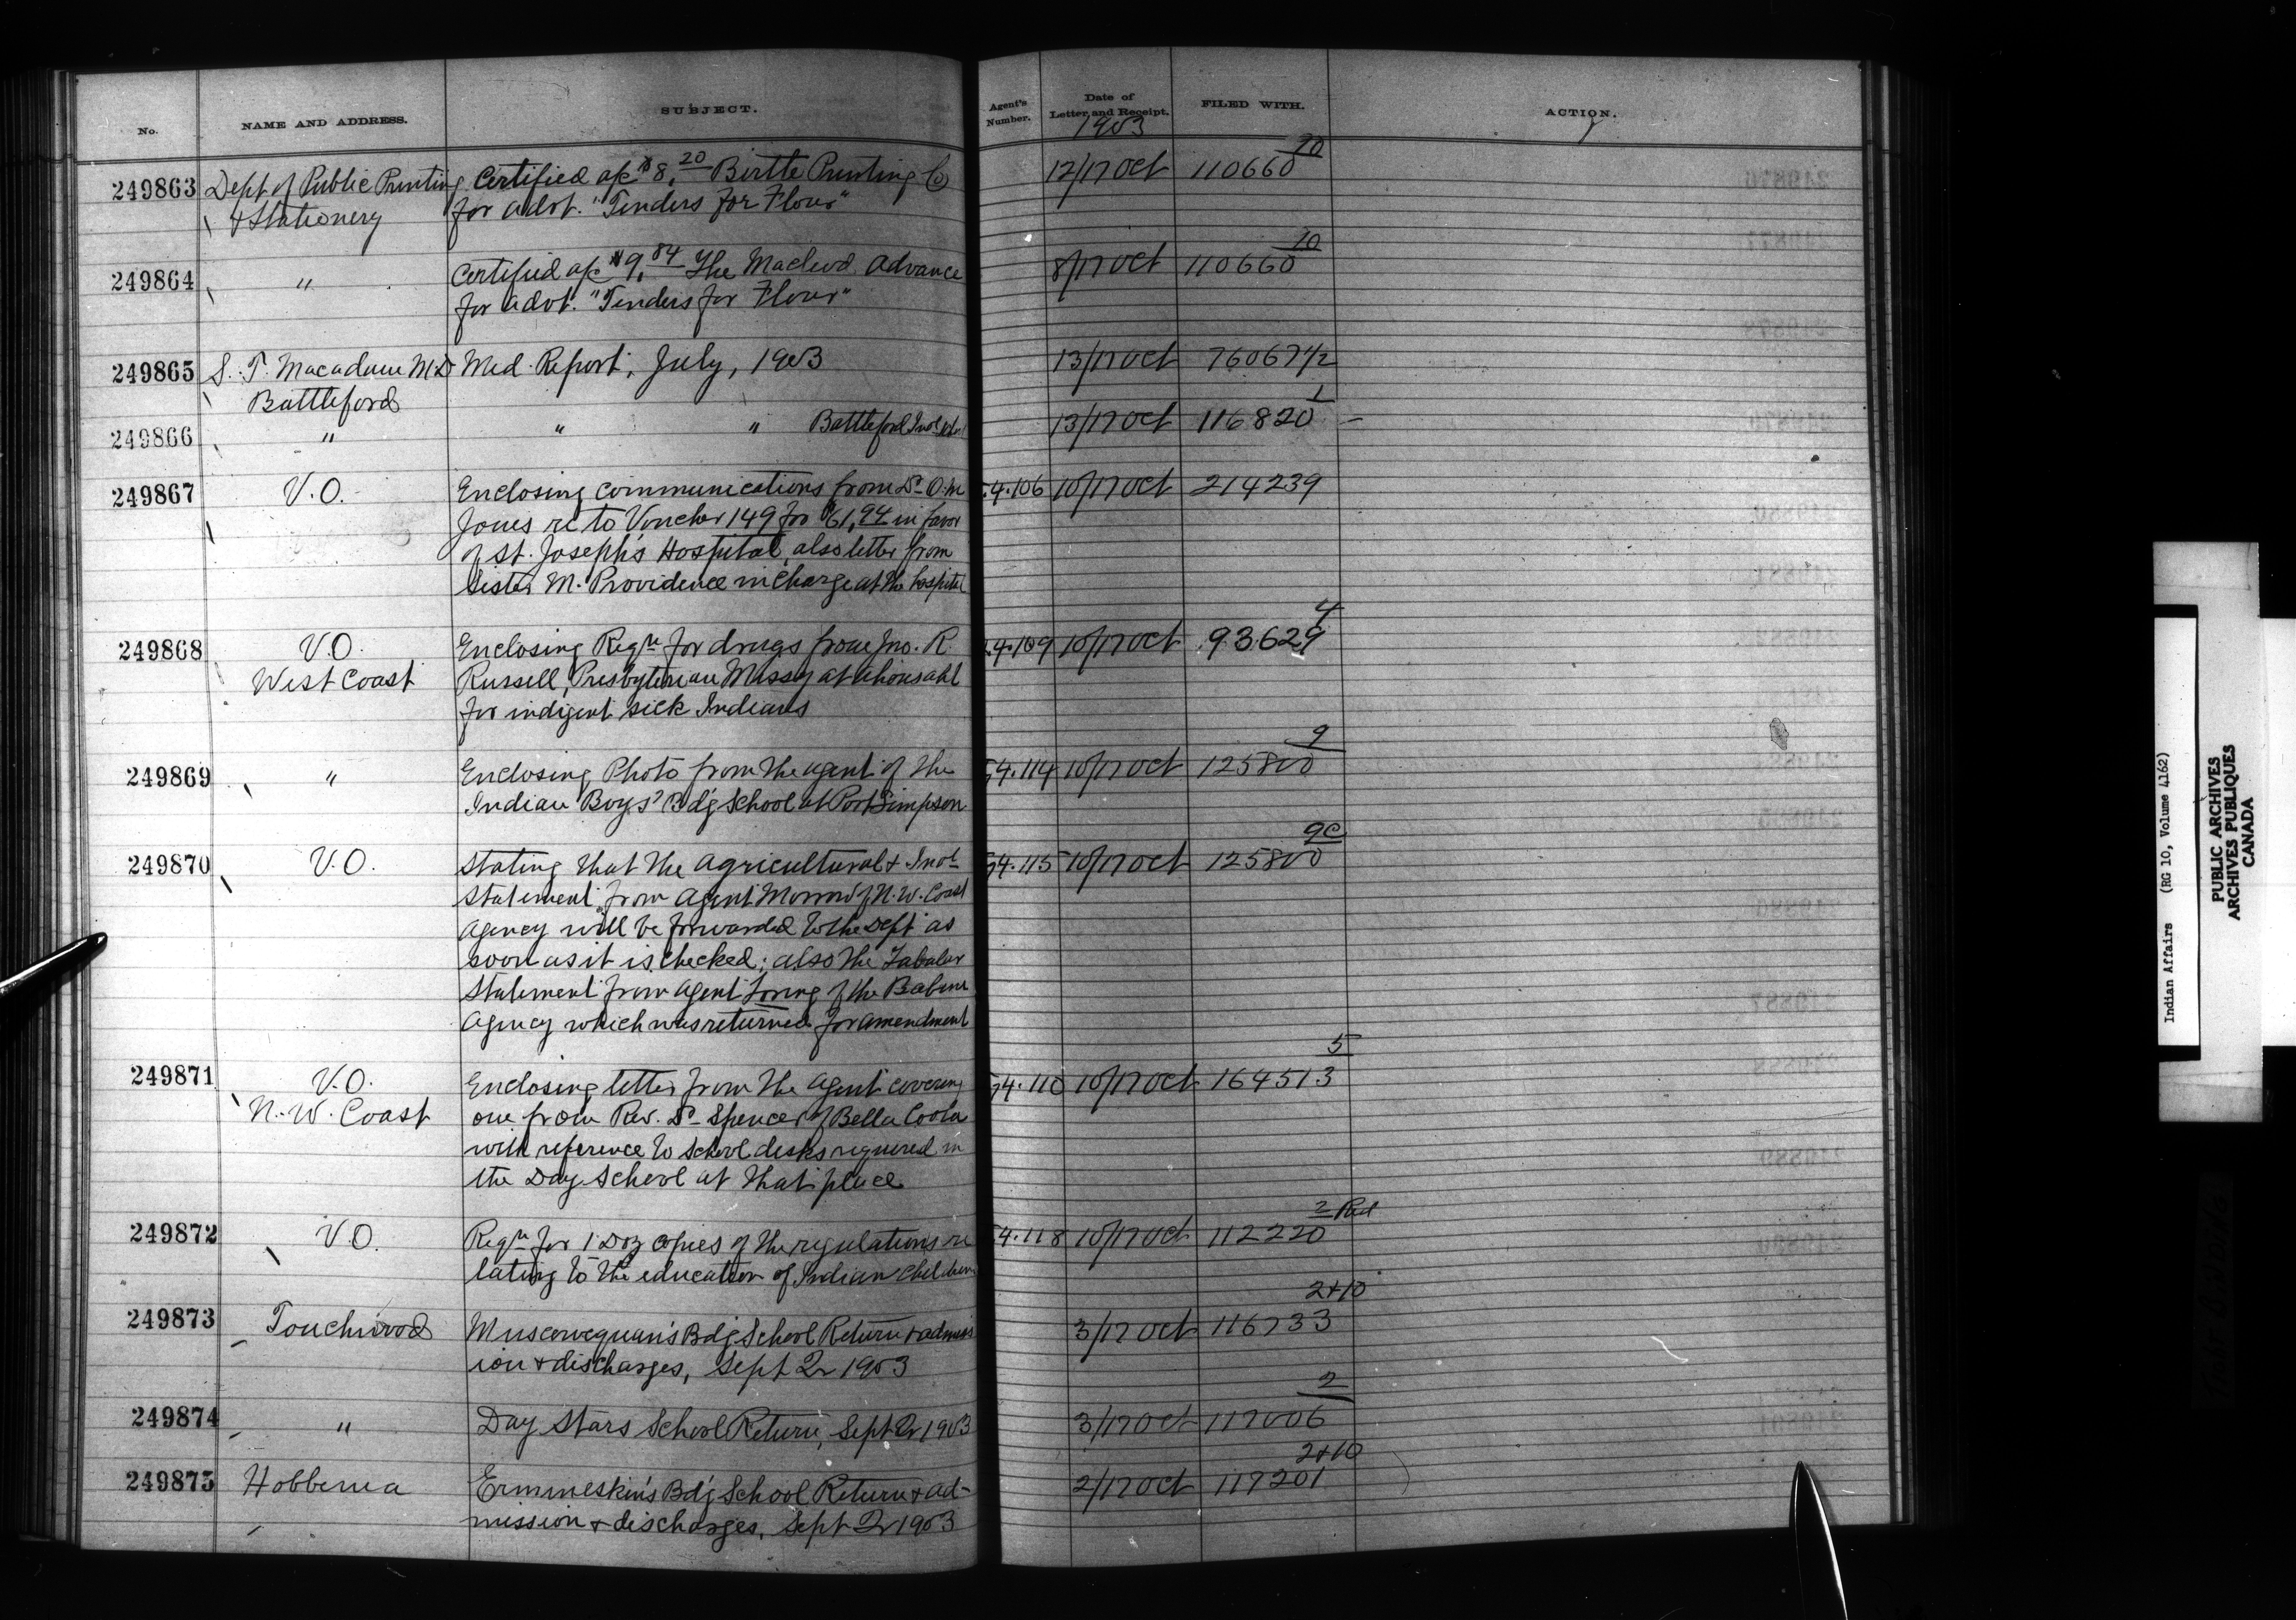 No. NAME AND ADDRESS. SUBJECT. Agent's Number. Date of Letter and Receipt. FILED WITH. ACTION.
1903
249863 Dept of Public Printing Certified a/c $8.20 Birtle Printing Co 12/17 Oct 110660 10
& Stationery for advt. "Tenders for Flour"
249864 " Certified a/c $9.84 The Macleod Advance 8/17 Oct 110660 10
for advt. "Tenders for Flour"
249865 S. T. Macadam M.D Med. Report, July, 1903 13/17 Oct 76067 1/2
Battleford
249866 " " " Battleford Indl Schl 13/17 Oct 116820 1 –
249867 V.O. Enclosing communications from Dr O.M 4.106 10/17 Oct 214239
Jones re to Voucher 149 for $61,94 in favor
of St. Joseph's Hospital, also letter from
Sister M. Providence in charge at the hospital
249868 V.O. Enclosing Reqn for drugs from Jno. R. 4.109 10/17 Oct 93629 4
West Coast Russell, Presbyterian Missy at Ahousaht
for indigent sick Indians
249869 " Enclosing Photo from the agent of the 4.114 10/17 Oct 125800 9
Indian Boys' Bdg School at Port Simpson
249870 V.O. Stating that the Agricultural & Indl 4.115 10/17 Oct 125800 9c
Statement from Agent Morrow of N.W. Coast
Agency will be forwarded to the Dept as
soon as it is checked; also the Tabular
Statement from Agent Loring of the Babine
Agency which was returned for amendment
249871 V.O. Enclosing letter from the Agent covering 4.110 10/17 Oct 164513 5
N.W. Coast one from Rev. Dr Spencer of Bella Coola
with reference to school desks required in
the Day School at that place
249872 V.O. Reqn for 1 Doz copies of the regulations re 4.118 10/17 Oct 112220 2 Red
lating to the education of Indian children
249873 Touchwood Muscowequan's Bdg School Return & admiss 3/17 Oct 116733 2+10
ion & discharges, Sept Qr 1903
249874 " Day Stars School Return, Sept Qr 1903 3/17 Oct 117006 2
249875 Hobbema Ermineskin's Bdg School Return & ad- 2/17 Oct 117201 2+10
mission & discharges, Sept Qr 1903
Indian Affairs (RG 10, Volume 4162)
PUBLIC ARCHIVES
ARCHIVES PUBLIQUES
CANADA